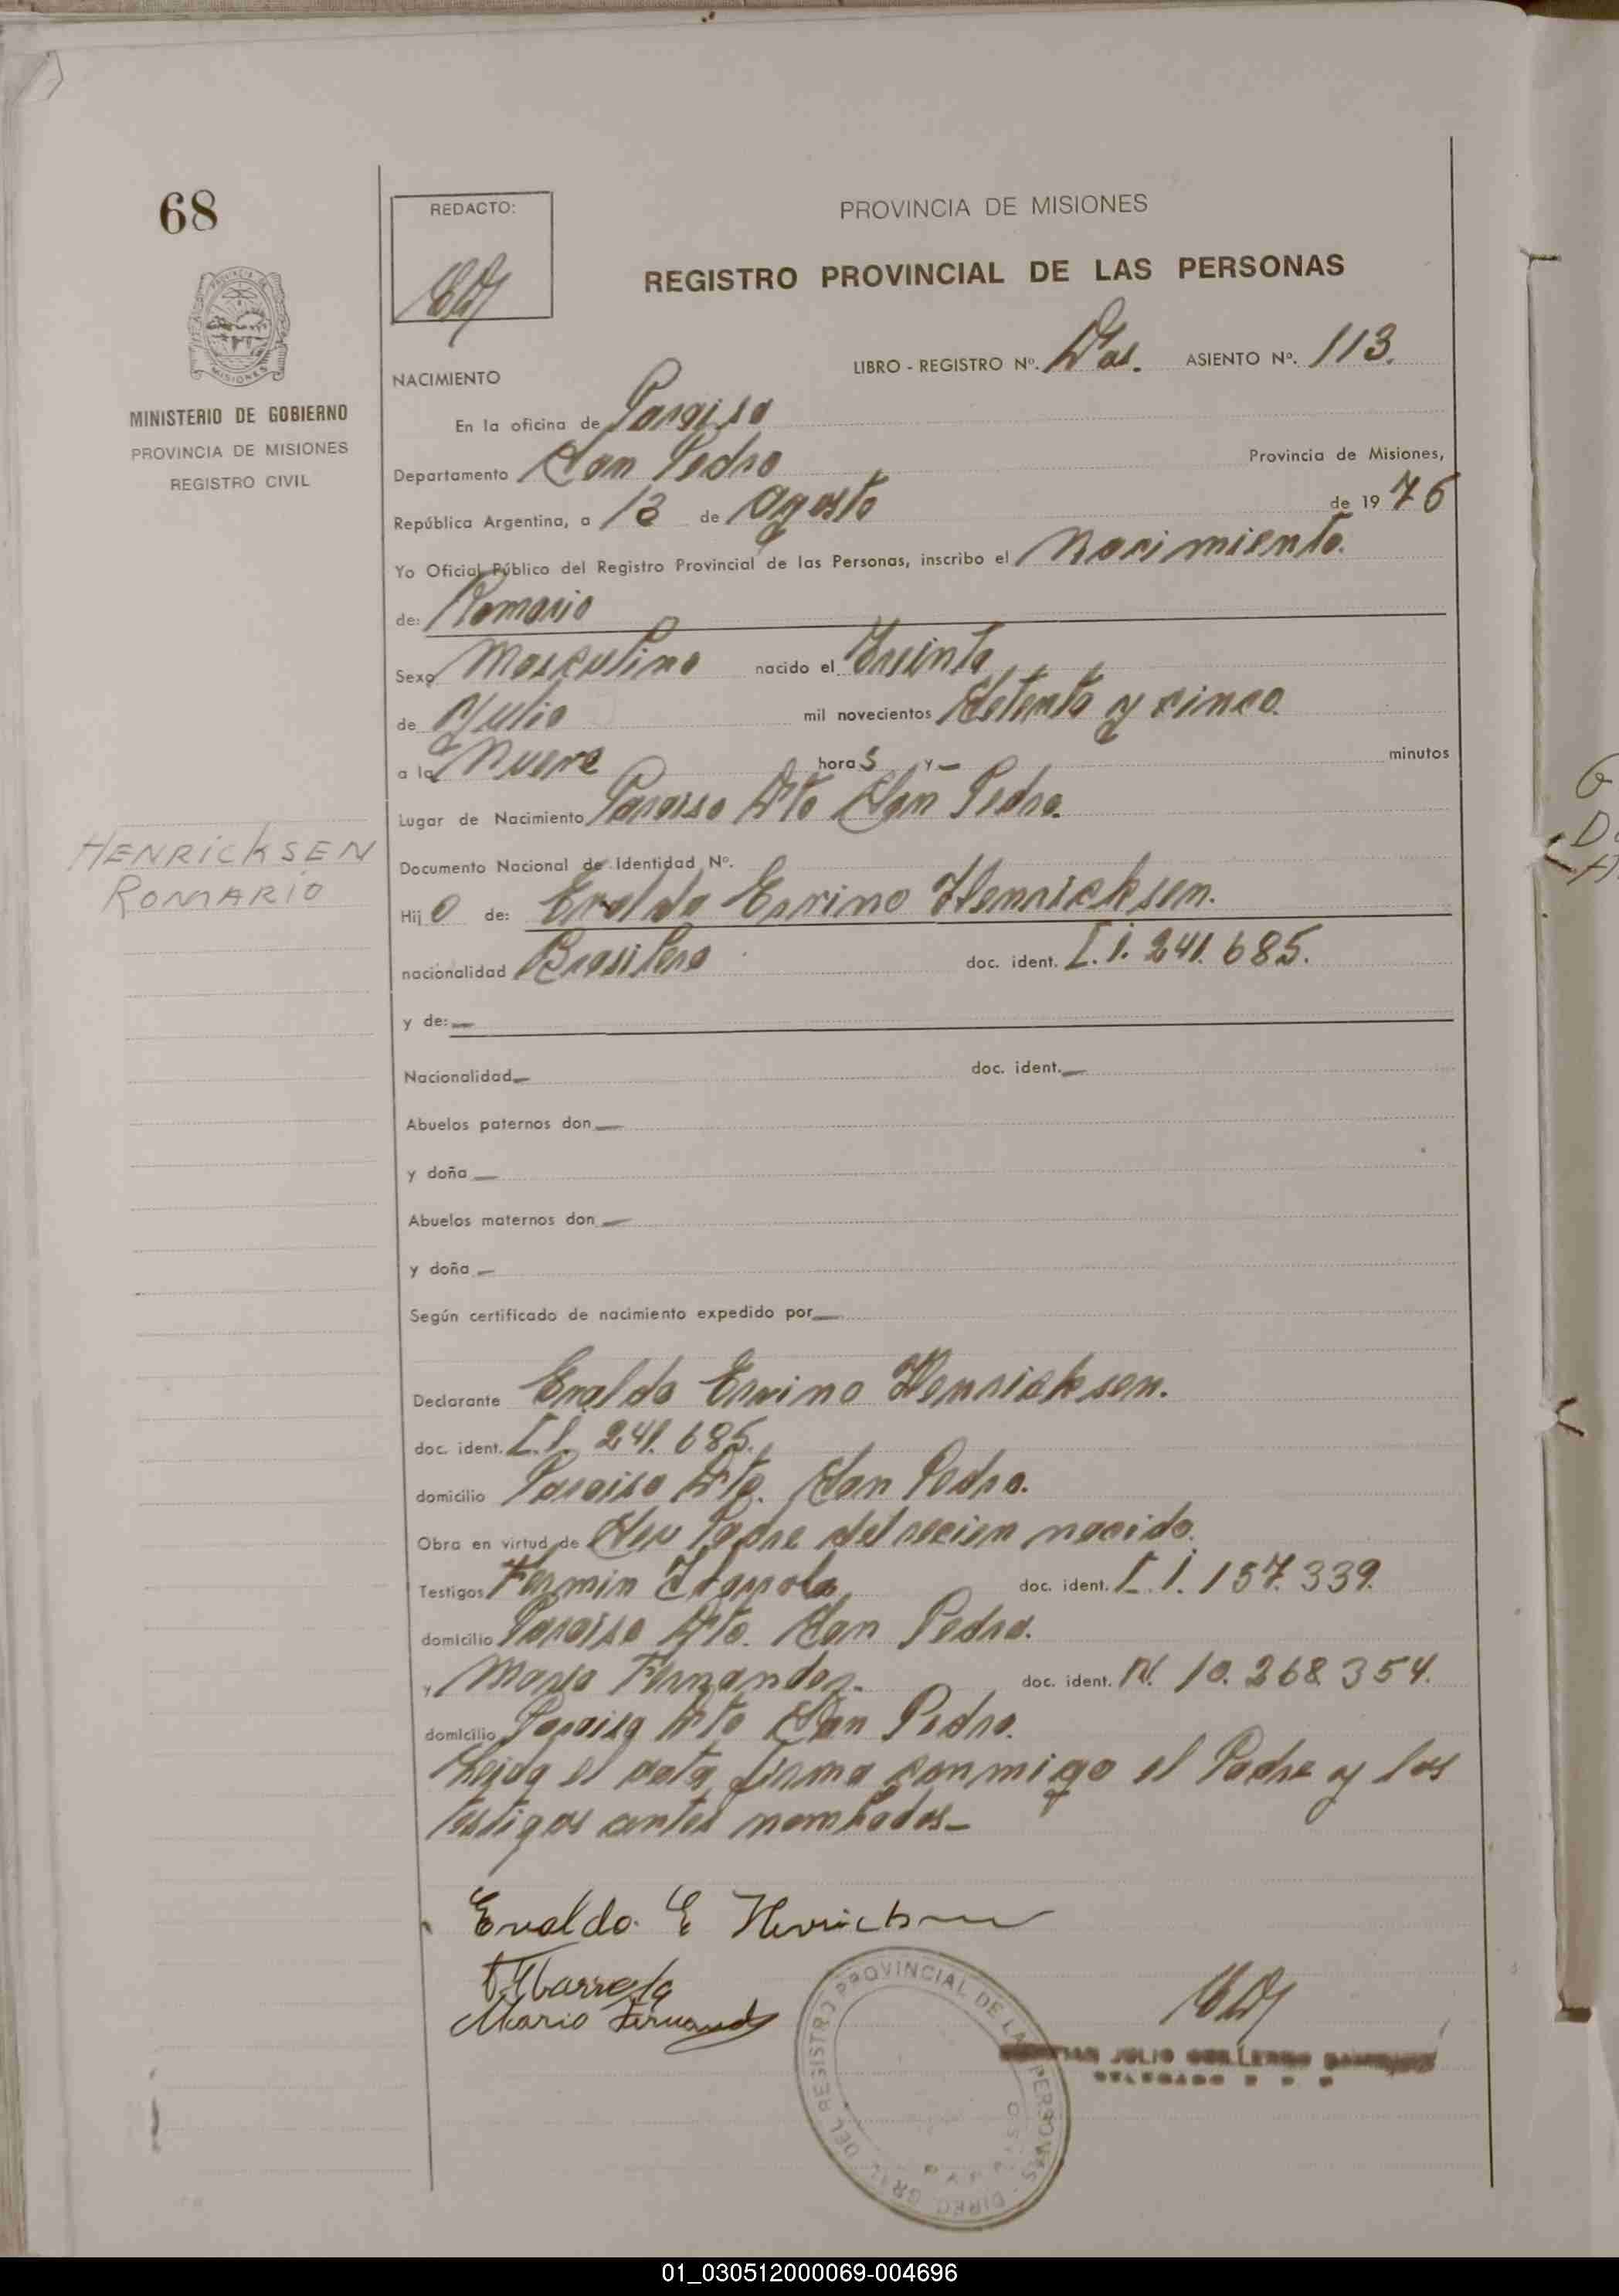 68
REDACTO:
PROVINCIA DE MISIONES
REGISTRO PROVINCIAL DE LAS PERSONAS
LIBRO - REGISTRO Nº. Dos. ASIENTO Nº. 113.
NACIMIENTO
MINISTERIO DE GOBIERNO
PROVINCIA DE MISIONES
REGISTRO CIVIL
En la oficina de Paraiso
Departamento San Pedro Provincia de Misiones,
República Argentina, a de Agosto de 19 76
Yo Oficial Público del Registro Provincial de las Personas, inscribo el Nacimiento.
de: Romario
Sexo Masculino nacido el Treinta
de Julio mil novecientos setenta y cinco.
a la Nueve horas y — minutos
Lugar de Nacimiento Paraiso Dto San Pedro.
HENRICKSEN
ROMARIO
Documento Nacional de Identidad Nº.
Hijo de: Evaldo Ervino Henricksen.
nacionalidad Brasilero doc. ident. C.I. 241.685.
y de: —
Nacionalidad — doc. ident. —
Abuelos paternos don —
y doña —
Abuelos maternos don —
y doña —
Según certificado de nacimiento expedido por —
Declarante Evaldo Ervino Henricksen.
doc. ident. C.I. 241.685.
domicilio Paraiso Dto. San Pedro.
Obra en virtud de Ser Padre del recien nacido.
Testigos Fermin doc. ident. C.I. 157.339.
domicilio Paraiso Dto. San Pedro.
y Mario Fernandez. doc. ident. N. 10.268.354.
domicilio Paraiso Dto San Pedro.
Leida el acta, firma conmigo el Padre y los
testigos antes nombados—
Evaldo E Henricksen
Mario Fernandz
DIREC. GRAL. DEL REGISTRO PROVINCIAL DE LAS PERSONAS
JULIO GUILLERMO
DELEGADO
01_030512000069-004696